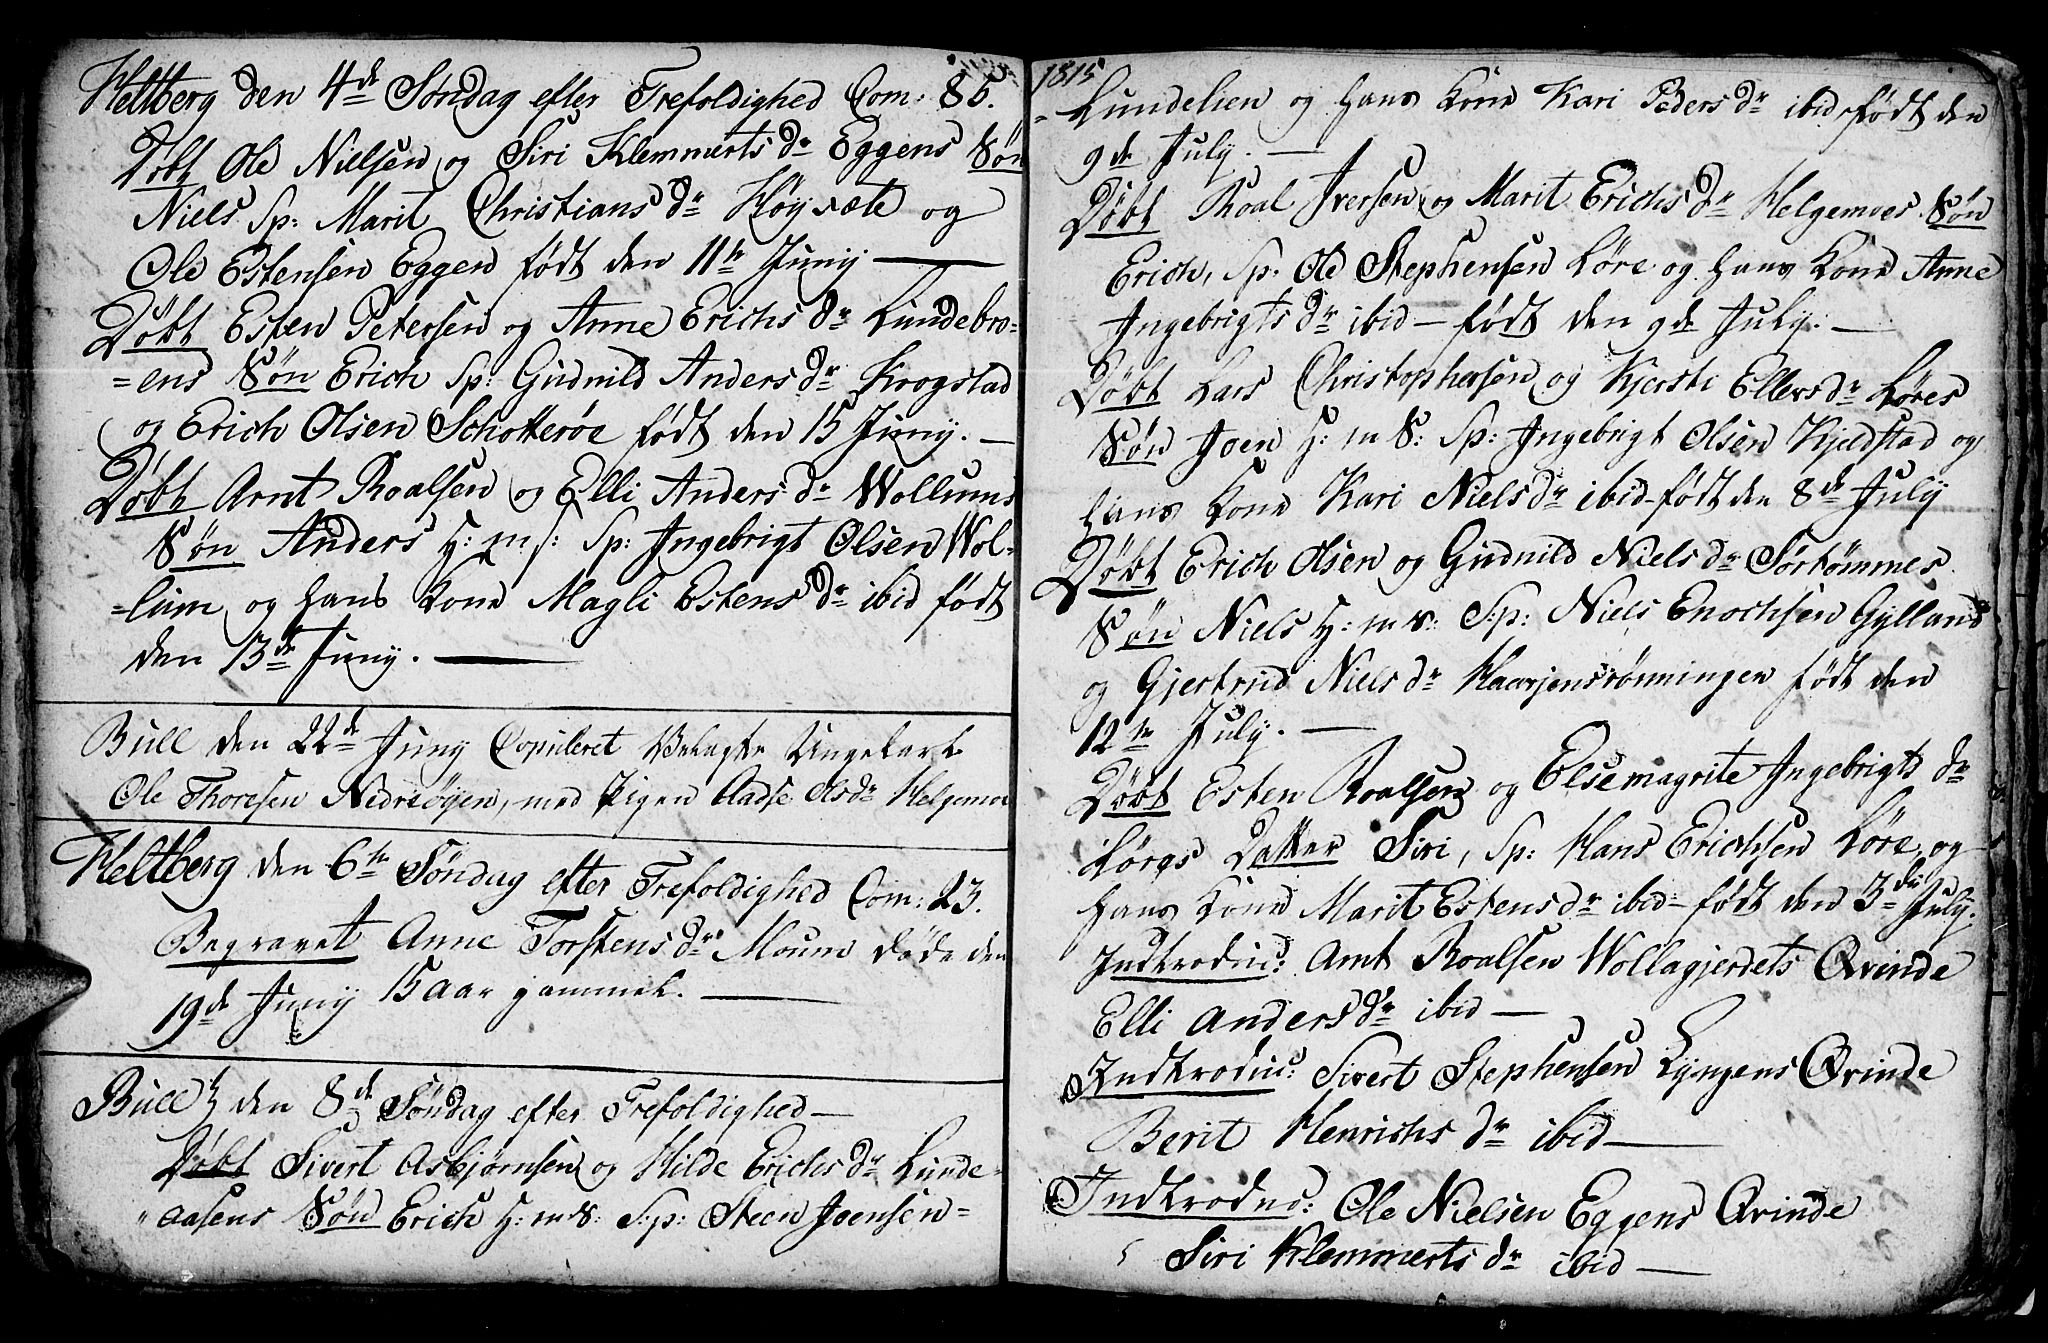 Heltberg den 4de Søndag efter Trefoldighed Com: 85.
Døbt Ole Nielsen og Siri Klemmerts dr Eggens Søn
Niels Sp: Marit Christians dr Høysæte og
Ole Estensen Eggen født den 11te Juny —
Døbt Esten Petersen og Anne Erichs dr Lundebro-
=ens Søn Erich Sp: Gudnild Anders dr Krogstad
og Erich Olsen Schotterøe født den 15 Juny. —
Døbt Arnt Roalsen og Elli Anders dr Wollums
Søn Anders H: m S: Sp: Ingebrigt Olsen Wol-
=lum og hans Kone Magli Estens dr ibid født
den 13de Juny. —
Bull den 22de Juny Copuleret Ungekarl
Ole Thoresen Nedreøyen, med Pigen Aadse Olsdr Helgemoe
Heltberg den 6te Søndag efter Trefoldighed Com: 23.
Begravet Anne Torstens dr Moum døde den
19de Juny 15 aar gammel. —
Bull den 8de Søndag efter Trefoldighed —
Døbt Sivert Asbjørnsen og Hilde Erichs dr Lunde-
=aasens Søn Erich H: m S: Sp: Steen Joensen=
1815
=Lundelien og hans Kone Kari Peders dr ibid født den
9de July. —
Døbt Roal Iversen og Marit Erichs dr Helgemoes Søn
Erich, Sp: Ole Stephensen Løre og hans Kone Anne
Ingebrigts dr ibid — født den 9de July. —
Døbt Lars Christophersen og Kjersti Ellers dr Løres
Søn Joen H: m S: Sp: Ingebrigt Olsen Kjeldstad og
hans Kone Kari Niels dr ibid — født den 8de July
Døbt Erich Olsen og Gudnild Niels dr Sørtømmes
Søn Niels H: m S: Sp: Niels Enochsen Gylland
og Gjertrud Niels dr Haarjensrønningen født den
12te July. —
Døbt Esten Roalsen og Elsemagrite Ingebrigts dr
Løres Datter Siri, Sp: Hans Erichsen Løre og
hans Kone Marit Estens dr ibid: født den 3die July.
Indtroduc: Arnt Roalsen Wollagjerdets Qvinde
Elli Anders dr ibid —
Indtroduc: Sivert Stephensen Lyngens Qvinde
Berit Henrichs dr ibid —
Indtroduc: Ole Nielsen Eggens Qvinde
Siri Klemmerts dr ibid —